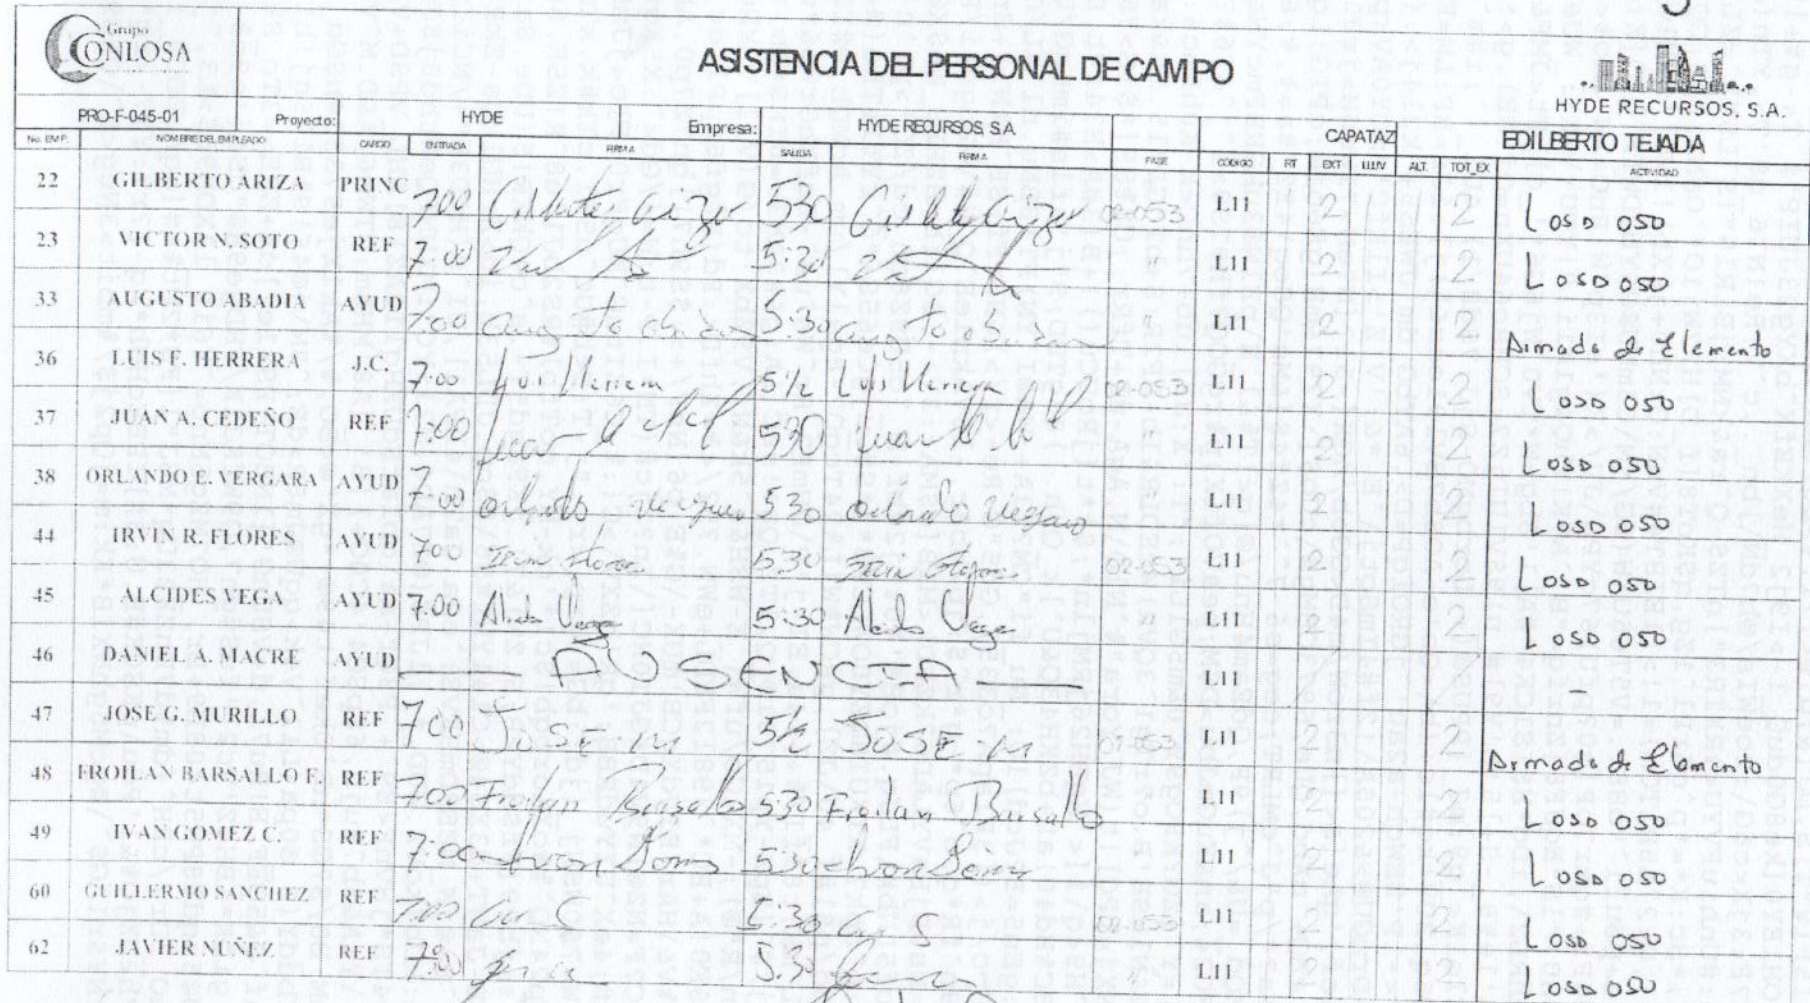 Grupo
CONLOSA
ASISTENCIA DEL PERSONAL DE CAMPO
HYDE RECURSOS, S.A.
PRO-F-045-01 Proyecto: HYDE Empresa: HYDE RECURSOS, S.A. CAPATAZ EDILBERTO TEJADA
No. EMP. NOMBRE DEL EMPLEADO CARGO ENTRADA FIRMA SALIDA FIRMA FASE CODIGO RT EXT LLUV ALT. TOT_EX ACTIVIDAD
22 GILBERTO ARIZA PRINC 700 530 02-053 L11 2 2 Losa 050
23 VICTOR N. SOTO REF 7:00 5:30 L11 2 2 Losa 050
33 AUGUSTO ABADIA AYUD 7:00 5:30 L11 2 2 Armado de Elemento
36 LUIS F. HERRERA J.C. 7:00 Luis Herrera 5½ Luis Herrera 02-053 L11 2 2 Losa 050
37 JUAN A. CEDEÑO REF 7:00 530 L11 2 2 Losa 050
38 ORLANDO E. VERGARA AYUD 7:00 Orlando Vergara 530 Orlando Vergara L11 2 2 Losa 050
44 IRVIN R. FLORES AYUD 700 Irvin Flores 530 Irvin Flores 02-053 L11 2 2 Losa 050
45 ALCIDES VEGA AYUD 7:00 Alcides Vega 5:30 Alcides Vega L11 2 2 Losa 050
46 DANIEL A. MACRE AYUD AUSENCIA L11 / / -
47 JOSE G. MURILLO REF 700 JOSE-M 5½ JOSE-M 02-053 L11 2 2 Armado de Elemento
48 FROILAN BARSALLO F. REF 700 Froilan Barsallo 530 Froilan Barsallo L11 2 2 Losa 050
49 IVAN GOMEZ C. REF 7:00 530 L11 2 2 Losa 050
60 GUILLERMO SANCHEZ REF 700 5:30 02-053 L11 2 2 Losa 050
62 JAVIER NUÑEZ REF 7:00 5:30 L11 2 2 Losa 050